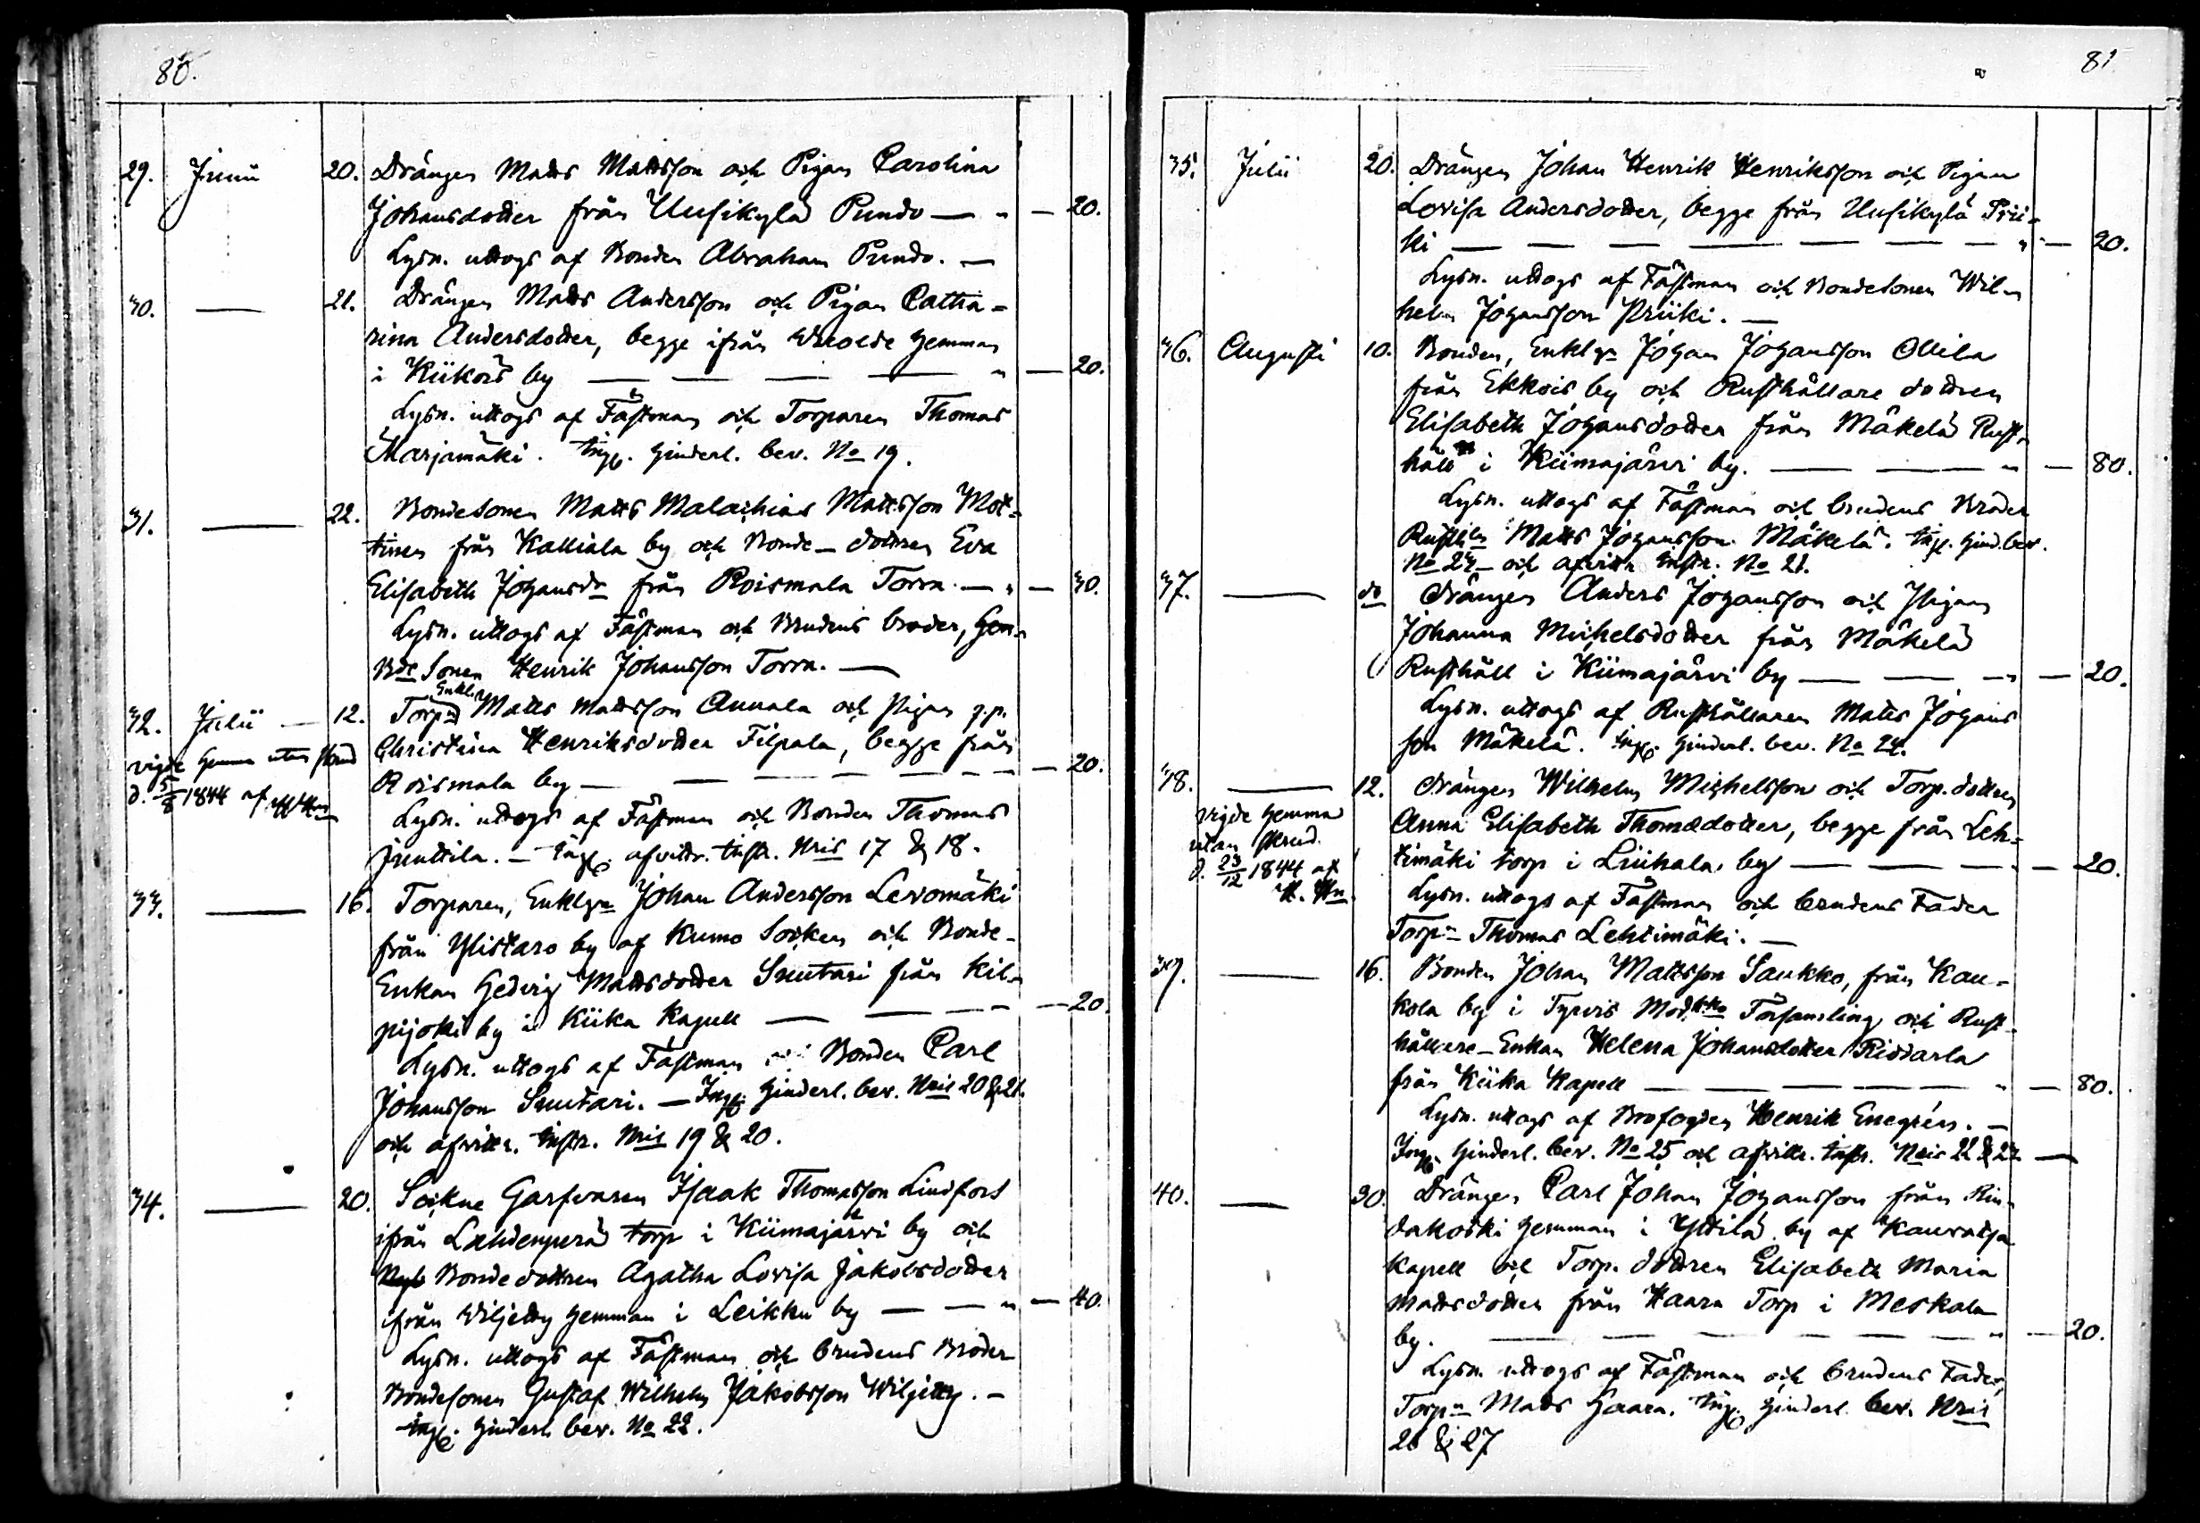 80.
29. Junii 20. Drängen Matts Mattsson och Pigan Carolina
Johansdotter från Uusikylä Pundo — " — 20.
Lysn. uttogs af Bonden Abraham Pundo. —
30. — 21. Drängen Matts Andersson och Pigan Catha-
rina Andersdotter, begge ifrån hemman
i Kiikois by — — — — " — 20.
Lysn. uttogs af Fästman och Torparen Thomas
Marjamäki. Ingl. hinderl. bev. No 19.
31. — 22. Bondesonen Matts Malachias Mattsson Mot-
tinen från Kalliala by och Bonde-dottren Eva
Elisabeth Johansdr från Roismala Torra. — " — 30.
Lysn. uttogs af Fästman och Brudens broder, Hem-
Bde Sonen Henrik Johansson Torra. —
32. Julii — 12. Torpn Enkl. Matts Mattsson Annala och Pigan q.p.
vigde hemma utan skrud Christina Henriksdotter Filpala, begge från
d. 5/8 1844 af Roismala by — — — — — 20.
Lysn. uttogs af Fästman och Bonden Thomas
Junttila. — Ingl. afvittr. Instr. Nris 17 & 18.
33. — 16. Torparen, Enklgn Johan Andersson Levomäki
från Ylistaro by af Kumo Socken och Bonde-
Enkan Hedvig Mattsdotter Suutari från Kil-
pijoki by i Kiika Kapell — — — — 20.
Lysn. uttogs af Fästman och Bonden Carl
Johansson Suutari. — Ingl. Hinderl. bev. Nris 20 & 21.
och afvittr. Instr. Nris 19 & 20.
34. — 20. Sockne Garfvaren Isaak Thomasson Lindfors
ifrån Lahdenperä torp i Kiimajärvi by och
Bondedottren Agatha Lovisa Jakobsdotter
ifrån Viljetty hemman i Leikku by — — " — 40.
Lysn. uttogs af Fästman och brudens Broder
Bondesonen Gustaf Wilhelm Jakobsson Wiljetty. —
Ingl. hinderl. bev. No 22.
81
35. Julii 20. Drängen Johan Henrik Henriksson och Pigan
Lovisa Andersdotter, begge från Uusikylä Prii-
ki — — — — — — — " — 20.
Lysn. uttogs af Fästman och Bondesonen Wil-
helm Johansson Priiki. —
36. Augusti 10. Bonden, Enklgn Johan Johansson Ollila
från Ekkois by och Rusthållare dottren
Elisabeth Johansdotter från Mäkelä Rust-
håll i Kiimajärvi by. — — — " — 80.
Lysn. uttogs af Fästman och brudens Broder
Rusthln Matts Johansson Mäkelä. Ingl. hind. bev.
No 23 och afvittr. Instr. No 21.
37. — do Drängen Anders Johansson och Pigan
Johanna Michelsdotter från Mäkelä
Rusthåll i Kiimajärvi by — — — " — 20.
Lysn. uttogs af Rusthållaren Matts Johans
son Mäkelä. Ingl. hinderl. bev. No 24.
38. — 12. Drängen Wilhelm Michelsson och Torp. dottren
vigde hemma Anna Elisabeth Thomædotter, begge från Leh-
utan skrud. timäki torp i Liuhala by — — — — 20.
d. 23/12 1844 af Lysn. uttogs af Fästman och brudens Fader
Torpn Thomas Lehtimäki. —
39. — 16. Bonden Johan Mattsson Saukko, från Kau-
kola by i Tyrvis Moderko Församling och Rust-
hållare-Enkan Helena Johansdotter Riddarla
från Kiika Kapell — — — — — " — 80.
Lysn. uttogs af Brofogden Henrik Enegrén. —
Ingl. hinderl. bev. No 25 och afvittr. Instr. Nris 22 & 23 —
40. — 30. Drängen Carl Johan Johansson från Rin-
dakoski hemman i Yttilä by af Kauvatsa
Kapell och Torp. dottren Elisabeth Maria
Mattsdotter från Haara Torp i Meskala
by. — — — — — — — " — 20.
Lysn. uttogs af Fästman och brudens Fader,
Torpn Matts Haara. Ingl. hinderl. bev. Nris
26 & 27